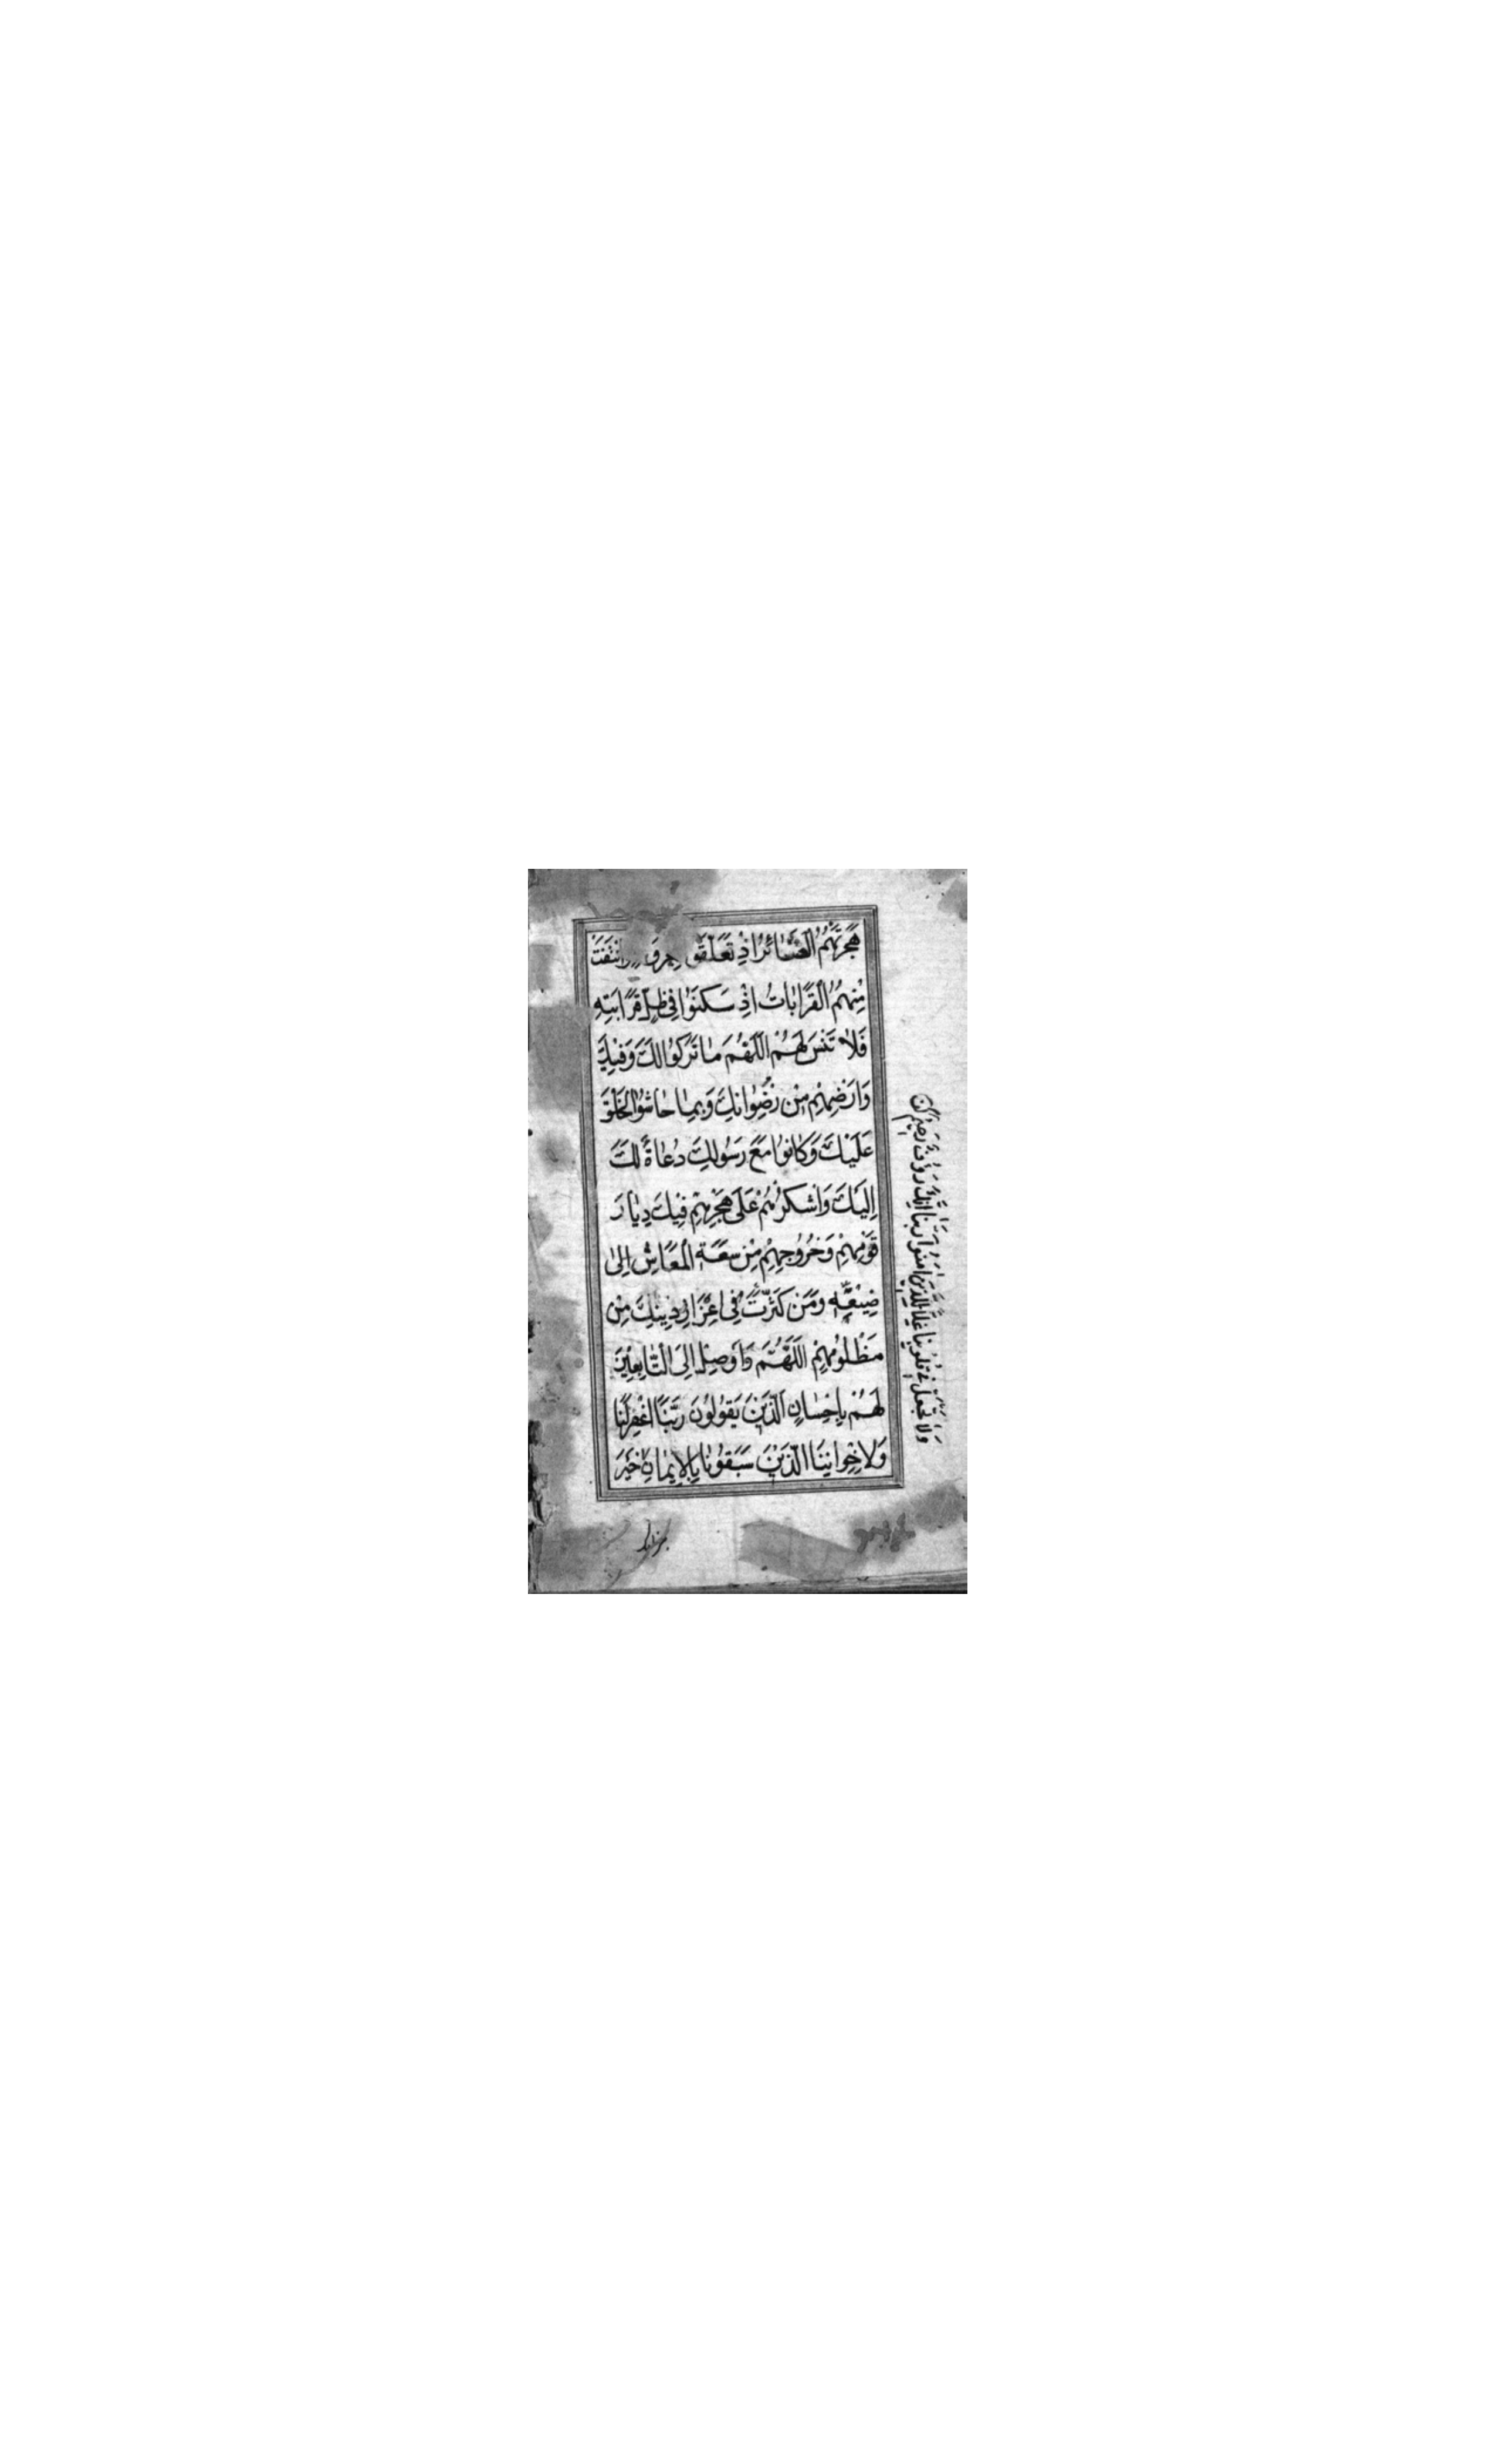 هَجَرَتْهُمُ الْعَشَائِرُ اِذْ تَعَلَّقُوا وَانْتَفَتْ
مِنْهُمُ الْقَرَابَاتُ اِذْ سَكَنُوا فِى ظِلِّ قَرَابَتِهِ
فَلَا تَنْسَ لَهُمُ اللّٰهُمَّ مَا تَرَكُوا لَكَ وَفِيكَ
وَارْضِهِمْ مِنْ رِضْوَانِكَ وَبِمَا حَاشُوا الْخَلْقَ
عَلَيْكَ وَكَانُوا مَعَ رَسُولِكَ دُعَاةً لَكَ
اِلَيْكَ وَاشْكُرْهُمْ عَلَى هَجْرِهِمْ فِيكَ دِيَارَ
قَوْمِهِمْ وَخُرُوجِهِمْ مِنْ سَعَةِ الْمَعَاشِ اِلَى
ضِيقِهِ وَمَنْ كَثَّرْتَ فِى اِعْزَازِ دِينِكَ مِنْ
مَظْلُومِهِمْ اَللّٰهُمَّ وَاَوْصِلْ اِلَى التَّابِعِينَ
لَهُمْ بِاِحْسَانٍ الَّذِينَ يَقُولُونَ رَبَّنَا اغْفِرْ لَنَا
وَلِاِخْوَانِنَا الَّذِينَ سَبَقُونَا بِالْاِيمَانِ خَيْرَ
وَلَا تَجْعَلْ فِى قُلُوبِنَا غِلًّا لِلَّذِينَ اٰمَنُوا رَبَّنَا اِنَّكَ رَؤُفٌ رَحِيمٌ